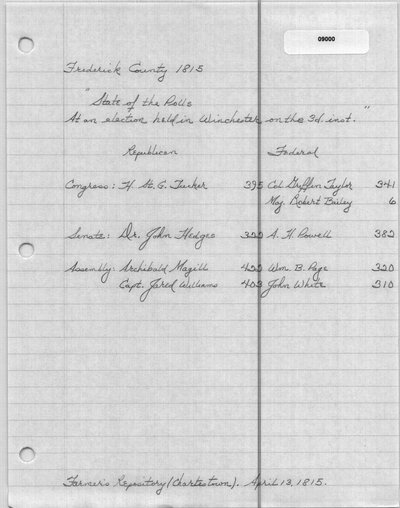 09000
Frederick County 1815
"State of the Polls
At an election held in Winchester on the 3d inst."
Republican Federal
Congress: H. St. G. Tucker 395 Col Griffin Taylor 341
Maj. Robert Bailey 6
Senate: Dr. John Hedges 322 A. H. Powell 382
Assembly: Archibald Magill 422 Wm. B. Page 320
Capt. Jared Williams 403 John White 310
Farmer's Repository (Charlestown). April 13, 1815.